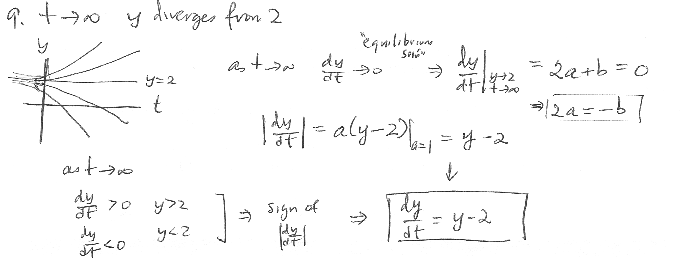 9. t→∞ y diverges from 2
y
y=2
t
as t→∞ dy/dt →0 "equilibrium soln" ⇒ dy/dt|y→2 t→∞ = 2a+b = 0
⇒ 2a=-b
|dy/dt| = a(y-2)|a=1 = y-2
↓
as t→∞
dy/dt >0 y>2
dy/dt <0 y<2
⇒ sign of |dy/dt| ⇒ dy/dt = y-2